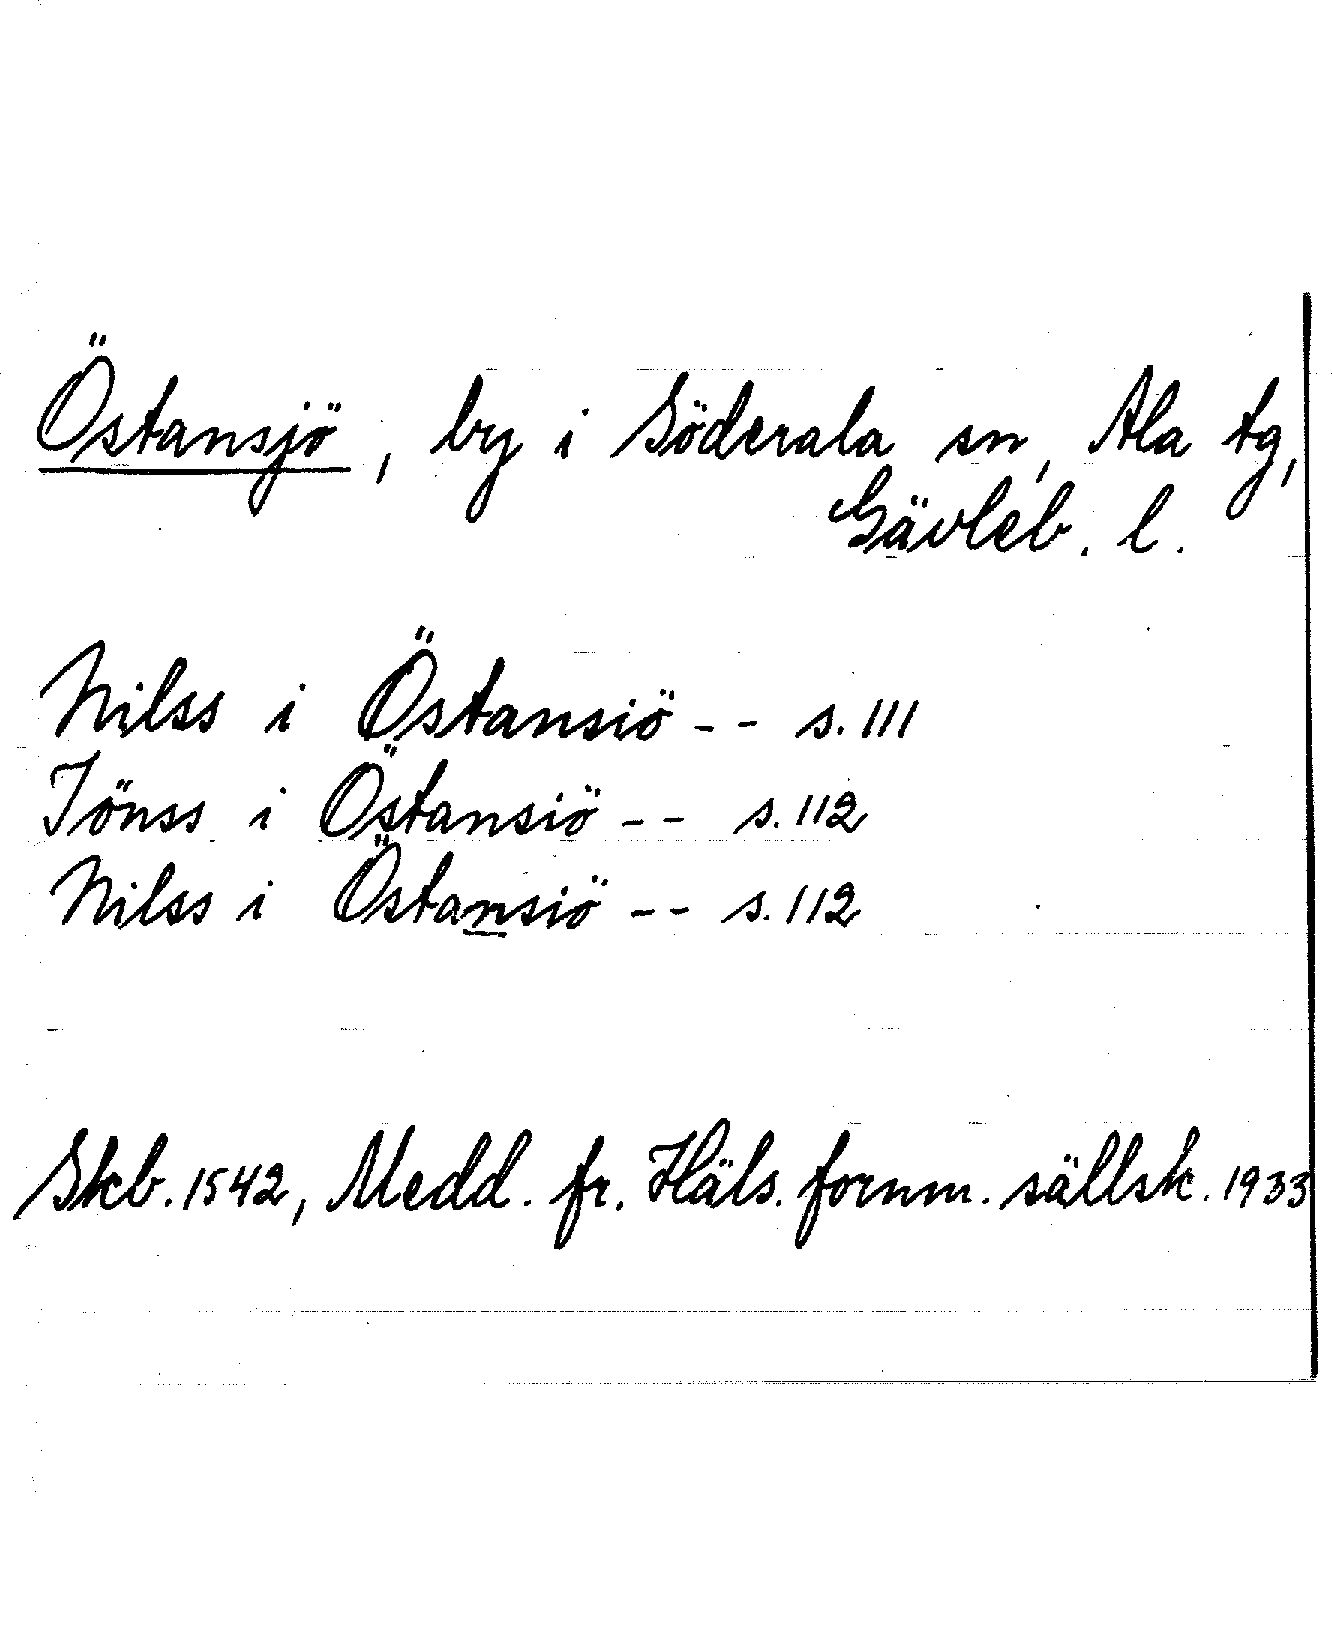 Östansjö, by i Söderala sn, Ala tg,
Gävleb. l.
Nilss i Östansiö -- s. 111
Jönss i Östansiö -- s. 112
Nilss i Östansiö -- s. 112
Skb. 1542, Medd. fr. Häls. fornm. sällsk. 1933